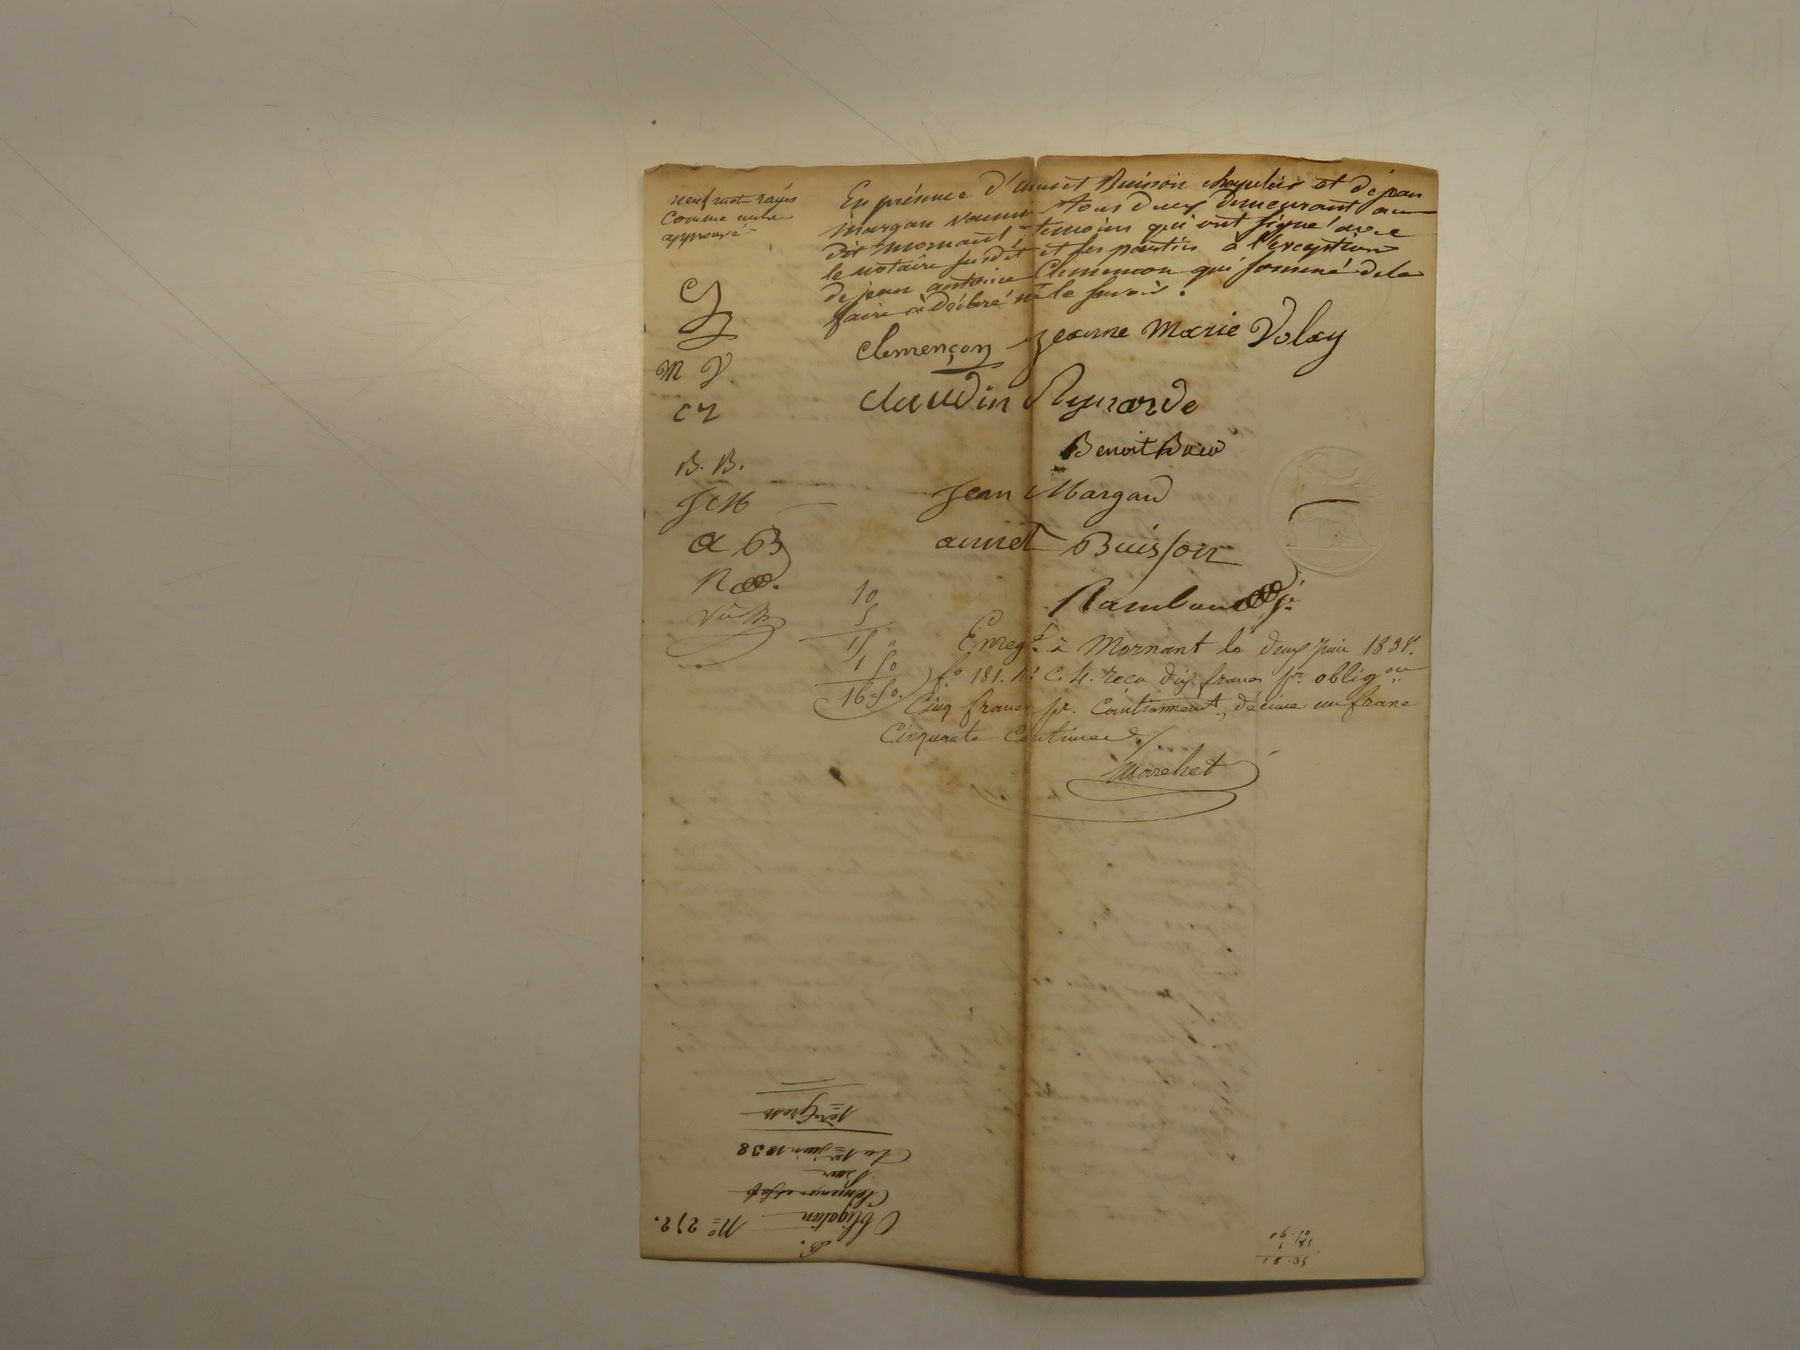 neuf mots rayés
comme nuls
approuvé
En présence d'annet Buisson chapelier et de jean
margan tous deux demeurant au
dit mornant temoins qui ont signé avec
le notaire susdit et les parties à l'exception
de jean antoine Clemencon qui sommé de le
faire a déclaré ne le savoir.
clemençon jeanne Marie Volay
M V
claudin Reynarde
C R
Benoit
B. B.
Jean Margand
J M
annet Buisson
A B
Rambaud
10
5
15 "
1 50
16=50.
Enreg.é à Mornant le deux juin 1838.
f.o 181. R.o C. 4. reçu dix francs p.r oblig.on
Cinq francs p.r Cautionnement, décime un franc
Cinquante Centimes
Marchet
N.o 272.
B.
Obligation
Clemençon
Du 1er juin 1838
1ère Grosse